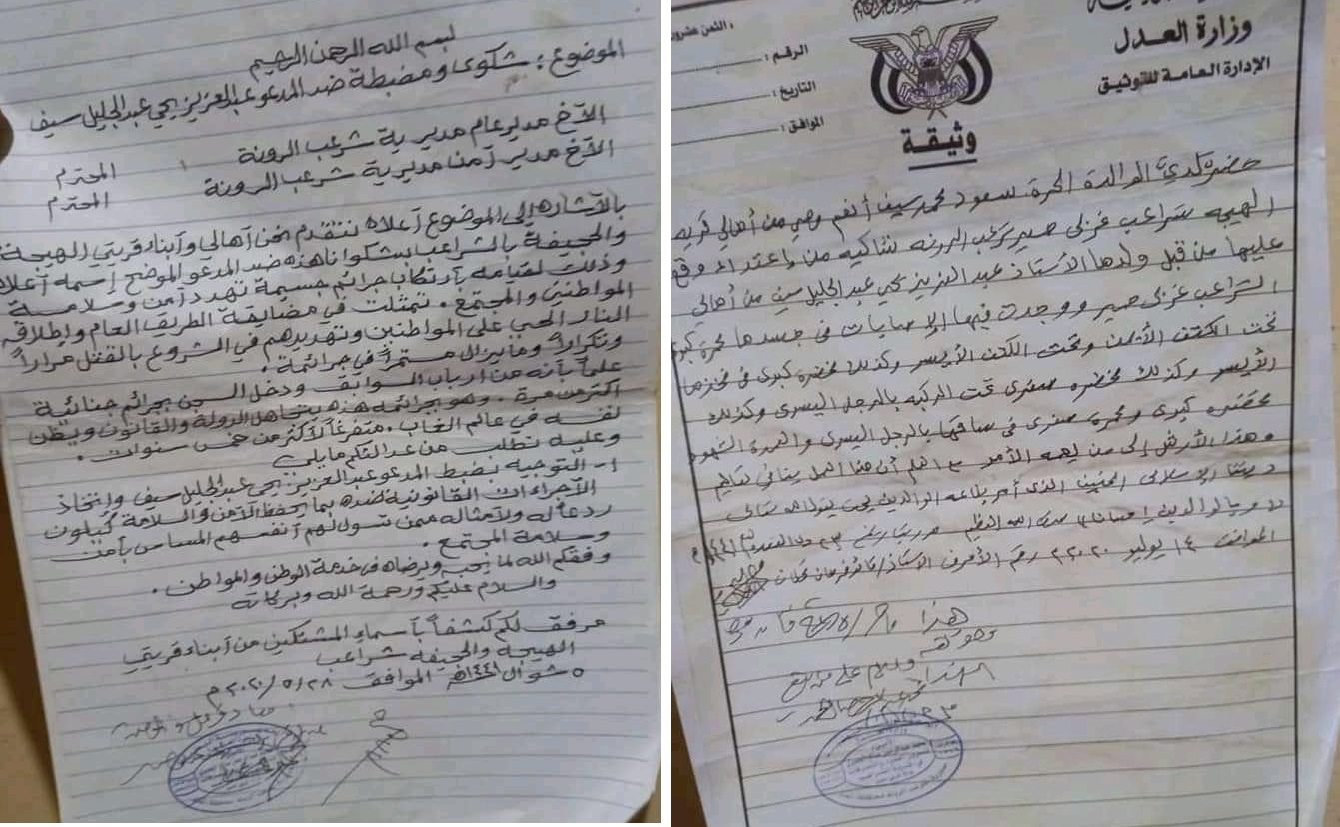 بسم الله الرحمن الرحيم
الموضوع: شكوى ومضبطة ضد المدعو عبدالعزيز يحي عبدالجليل سيف
الآخ مدير عام مديرية شرعب الرونة المحترم
الآخ مدير آمن مديرية شرعب الرونة المحترم
بالآشاره إلى الموضوع آعلاه نتقدم نحن آهالي وآبناء قريتي الهيجة
والجيفة بالشراعب بشكوانا هذه ضد المدعو الموضح إسمه آعلاه
وذلك لقيامه بآرتكاب جرائم جسيمة تهدد آمن وسلامة
المواطنين والمجتمع. تمثلت في مضايقة الطريق العام وإطلاقه
النار الحي على المواطنين وتهديدهم في الشروع بالقتل مراراً
وتكراراً وما يزال مستمراً في جرائمة.
علماً بآنه من آرباب السوابق ودخل السجن بجرائم جنائية
آكثر من مرة. وهو بجرائمه هذه يتجاهل الدولة والقانون ويظن
نفسه في عالم الغاب. متفرغاً لآكثر من خمس سنوات.
وعليه نطلب من عدالتكم مايلي
١- التوجيه بضبط المدعو عبدالعزيز يحي عبدالجليل سيف وإتخاذ
الآجراءات القانونية ضده بما يحفظ الآمن والسلامة كيلون
ردعاً له ولآمثاله ممن تسول لهم آنفسهم المساس بآمن
وسلامة المجتمع.
وفقكم الله لما يحب ويرضاه في خدمة الوطن والمواطن.
والسلام عليكم ورحمة الله وبركاته
مرفق لكم كشفاً بآسماء المشتكين من آبناء قريتي
الهيجة والجيفه شراعب
٥ شوال ١٤٤١هـ الموافق ٢٨/٥/٢٠٢٠م
وزارة العدل
الإدارة العامة للتوثيق
الرقم:
التاريخ:
الموافق:
وثيقة
حضرة لدي الوالدة الحرة سعود محمد سيف أنعم وهي من أهالي قريه
الهيجه شراعب عزلة صير شرعب الرونه شاكيه من إعتداء وقع
عليها من قبل ولدها الأستاذ عبد العزيز يحي عبد الجليل سيف من أهالي
الشراعب عزلة صير ووجدت فيها الإصابات في جسدها محمرة كبرى
تحت الكتف الأيمن وتحت الكتف الأيسر وكذلك مخضره كبرى في فخذها
الأيسر وكذلك مخضره صغرى تحت الركبه بالرجل اليسرى وكذلك
مخضره كبرى ومحمره صغرى في ساقها بالرجل اليسرى
وهذا الأرش إلى من يهمه الأمر مع العلم أن هذا العمل ينافي تعاليم
ديننا الإسلامي الحنيف الذي أمر بطاعه الوالدين
الموافق ١٤ يوليو ٢٠٢٠